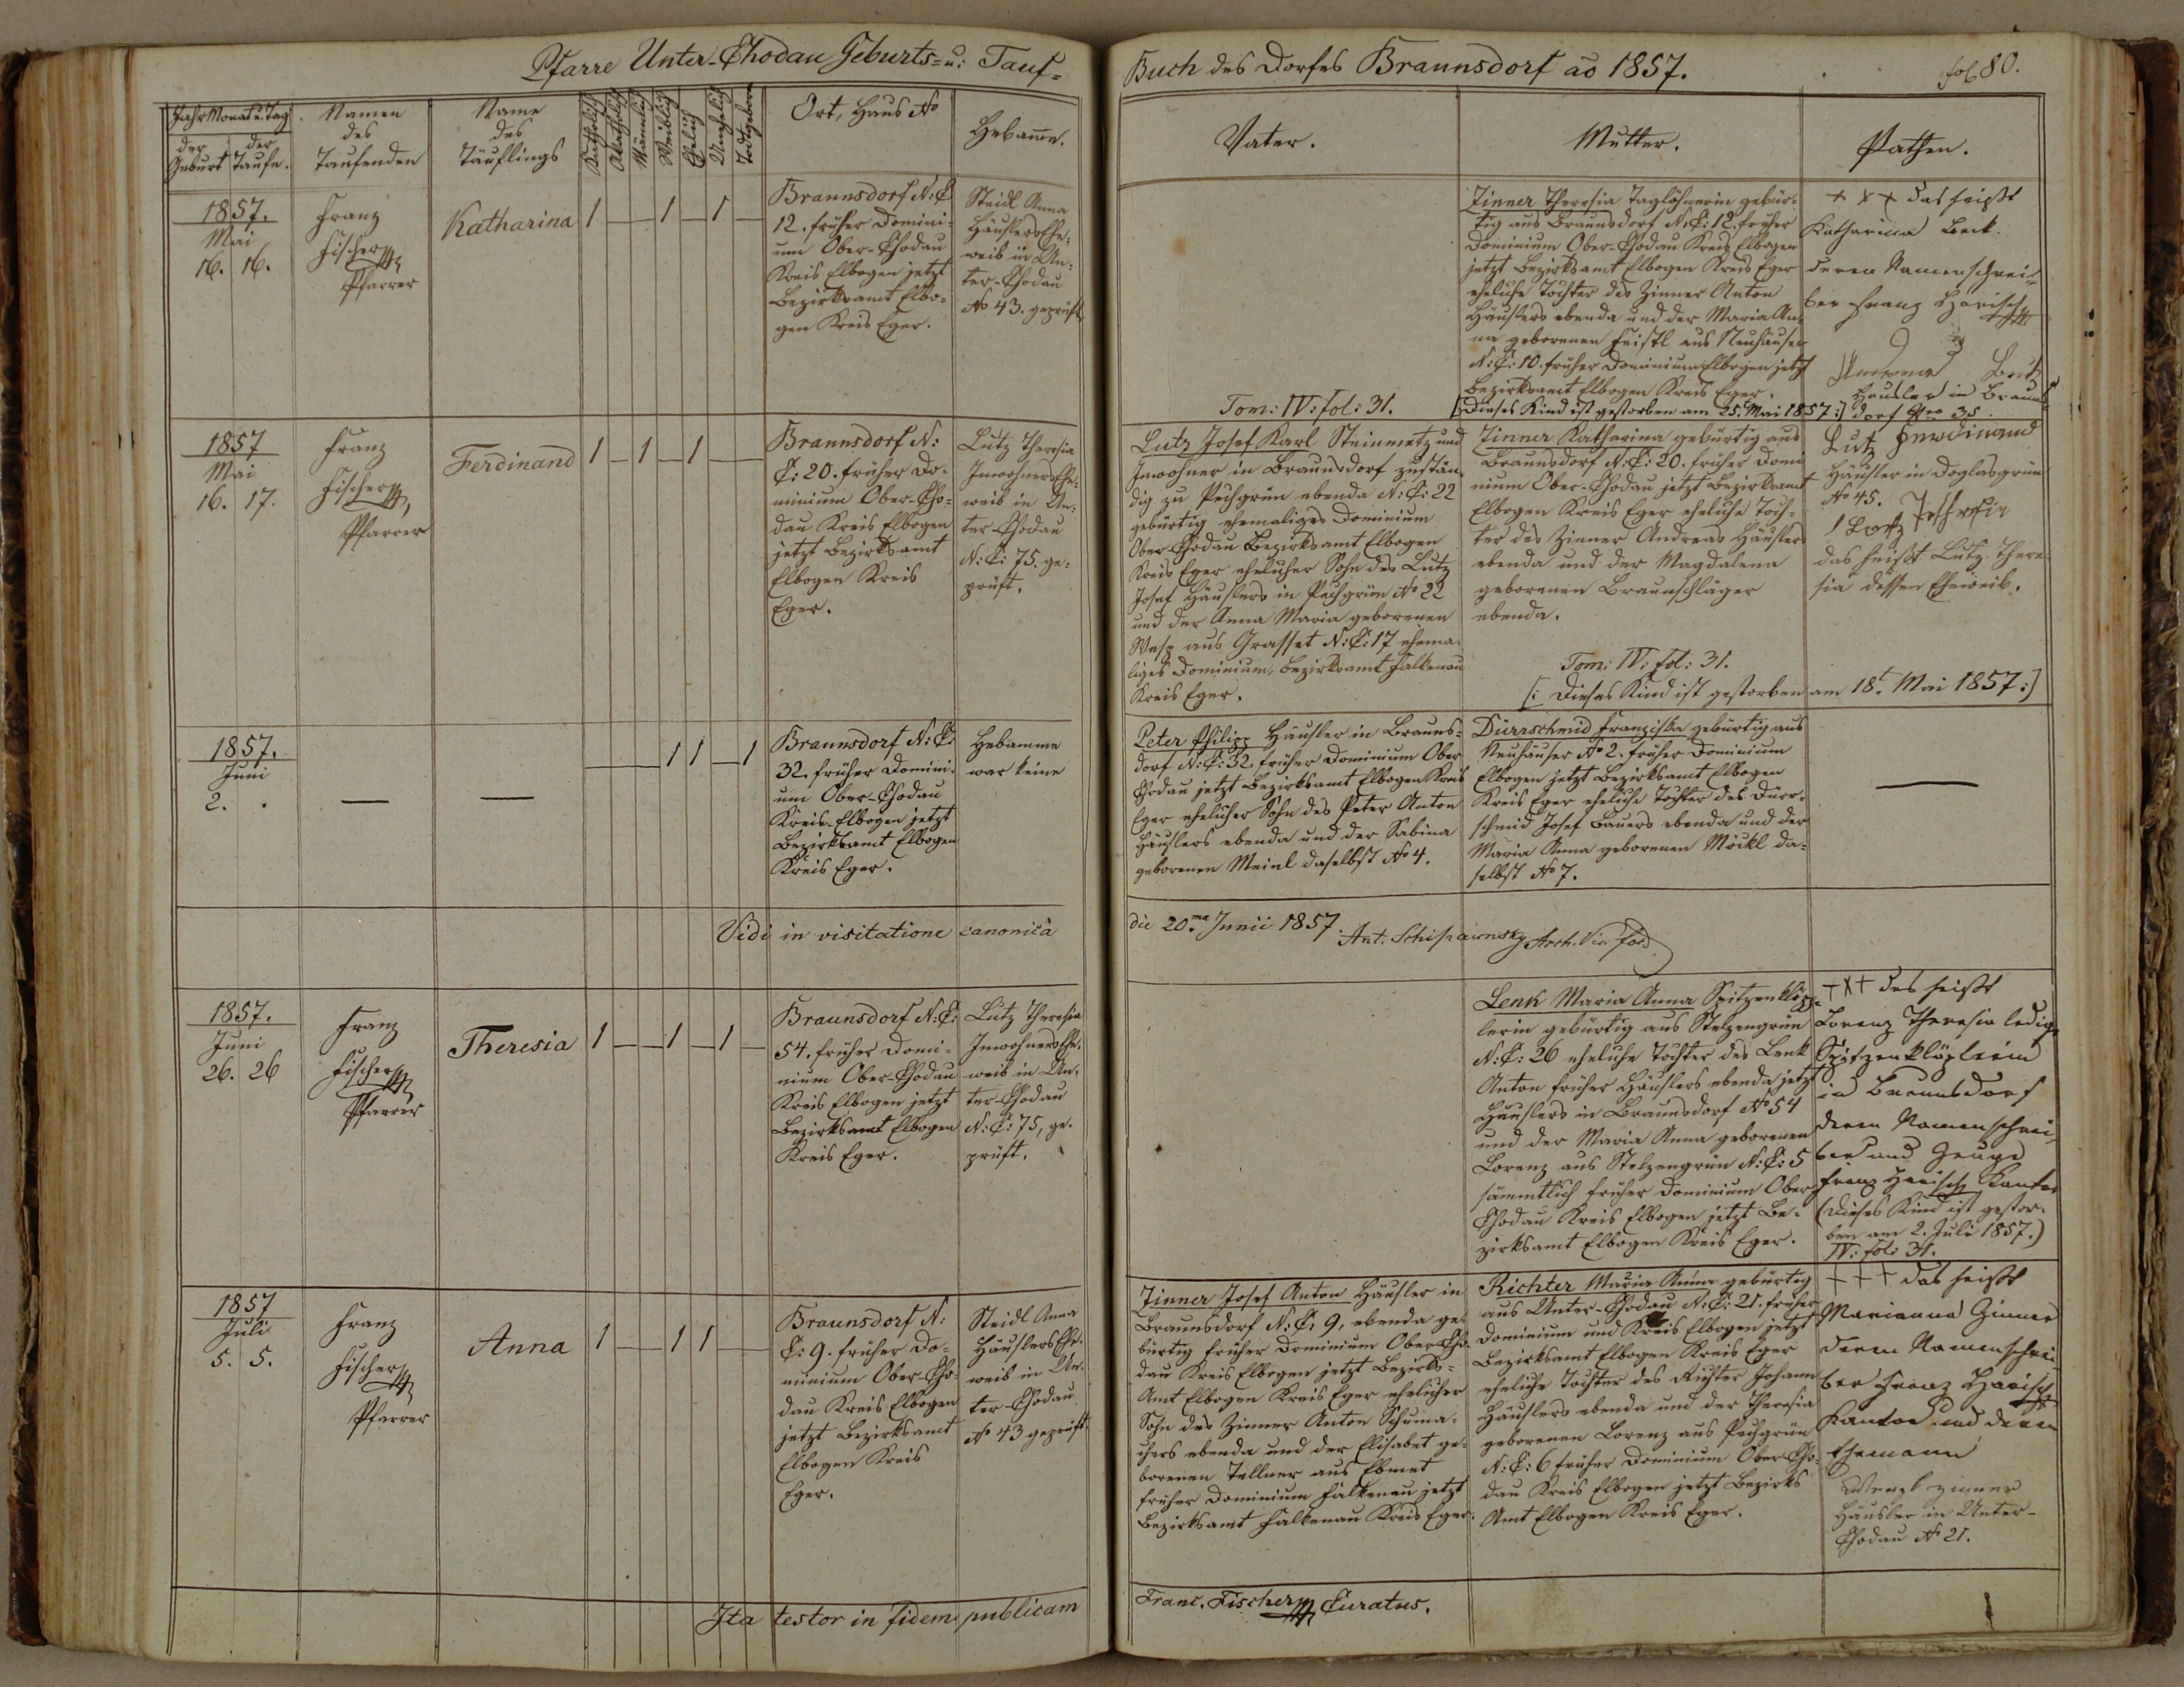 Pfarre Unter-Chodau Geburts- u: Tauf-
Buch des Dorfes Braunsdorf ao 1857.
fol. 80.
Jahr Monat u. Tag
der Geburt
der Taufe.
Namen
des
Taufenden
Name
des
Täuflings
Katholisch
Akatholisch
Männlich
Weiblich
Ehelich
Unehelich
Todtgeboren
Ort, Haus No
Hebamme.
Vater.
Mutter.
Pathen.
1857.
Mai
16. 16.
Franz
Fischer
Pfarrer
Katharina
1 — 1 — 1 —
Braunsdorf N: C:
12. früher Domini-
um Ober-Chodau
Kreis Elbogen jetzt
Bezirksamt Elbo-
gen Kreis Eger.
Steidl Anna
Häuslers Ehe-
weib in Un-
ter-Chodau
No 43. geprüft
Tom: IV: fol: 31.
Zinner Theresia Taglöhnerin gebür-
tig aus Braunsdorf N: C: 12. früher
Dominium Ober-Chodau Kreis Elbogen
jetzt Bezirksamt Elbogen Kreis Eger
eheliche Tochter des Zinner Anton
Häuslers ebenda und der Maria An-
na geborenen Feistl aus Neuhäuser
N: C: 10. früher Dominium Elbogen jetzt
Bezirksamt Elbogen Kreis Eger.
[: Dieses Kind ist gestorben am 25. Mai 1857 :]
+ + + das heißt
Katharina Beck
deren Namenschrei-
ber Franz Harisch
Häusler in Brauns-
dorf Nro 35.
1857
Mai
16. 17.
Franz
Fischer
Pfarrer
Ferdinand
1 — 1 — 1 —
Braunsdorf N:
C: 20. früher Do-
minium Ober-Cho-
dau Kreis Elbogen
jetzt Bezirksamt
Elbogen Kreis
Eger.
Lutz Theresia
Inwohners Ehe-
weib in Un-
ter-Chodau
N: C: 75. ge-
prüft.
Lutz Josef Karl Steinmetz und
Inwohner in Braunsdorf zustän-
dig zu Puchgrün ebenda N: C: 22
gebürtig ehemaliges Dominium
Ober-Chodau Bezirksamt Elbogen
Kreis Eger ehelicher Sohn des Lutz
Josef Häuslers in Puchgrün No 22
und der Anna Maria geborenen
aus Grasset N: C: 17 ehema-
liges Dominium, Bezirksamt Falkenau
Kreis Eger.
Zinner Katharina gebürtig aus
Braunsdorf N: C: 20. früher Domi
nium Ober-Chodau jetzt Bezirksamt
Elbogen Kreis Eger eheliche Toch-
ter des Zinner Andreas Häuslers
ebenda und der Magdalena
geborenen Braunschläger
ebenda.
Tom: IV: fol: 31.
[: Dieses Kind ist gestorben am 18t. Mai 1857 :]
Lutz Ferdinand
Häusler in Doglasgrün
No 45.
das heißt Lutz There-
sia dessen Eheweib.
1857.
Juni
2. .
— —
— 1 1 — 1
Braunsdorf N: C:
32. früher Domini-
um Ober-Chodau
Kreis Elbogen jetzt
Bezirksamt Elbogen
Kreis Eger.
Hebamme
war keine
Peter Philipp Häusler in Brauns-
dorf N: C: 32. früher Dominium Ober
Chodau jetzt Bezirksamt Elbogen Kreis
Eger ehelicher Sohn des Peter Anton
Häuslers ebenda und der Sabina
geborenen Meinl daselbst No 4.
Dürrschmid Franziska gebürtig aus
Neuhäuser No 2. früher Dominium
Elbogen jetzt Bezirksamt Elbogen
Kreis Eger eheliche Tochter des Dürr-
schmid Josef Bauers ebenda und der
Maria Anna geborenen Möckl da-
selbst No 7.
—
Vidi in visitatione canonica
die 20ma Junii 1857. Ant. Arch. Vic. for.
1857.
Juni
26. 26
Franz
Fischer
Pfarrer
Theresia
1 — 1 — 1 —
Braunsdorf N: C:
54. früher Domi-
nium Ober-Chodau
Kreis Elbogen jetzt
Bezirksamt Elbogen
Kreis Eger.
Lutz Theresia
Inwohners Ehe-
weib in Un-
ter-Chodau
N: C: 75, ge-
prüft.
Lenk Maria Anna Spitzenklöpp-
lerin gebürtig aus Stelzengrün
N: C: 26 eheliche Tochter des Lenk
Anton früher Häuslers ebenda jetzt
Häuslers in Braunsdorf No 54
und der Maria Anna geborenen
Lorenz aus Stelzengrün N: C: 5
sämmtlich früher Dominium Ober
Chodau Kreis Elbogen jetzt Be-
zirksamt Elbogen Kreis Eger.
+++ das heißt
Lorenz Theresia ledige
Spitzenklöplerin
in Braunsdorf
deren Namenschrei-
ber und Zeuge
Franz Harisch Kantor
(Dieses Kind ist gestor-
ben am 2. Juli 1857.)
IV: fol: 31.
1857
Juli
5. 5.
Franz
Fischer
Pfarrer
Anna
1 — 1 1 —
Braunsdorf N:
C: 9. früher Do-
minium Ober-Cho-
dau Kreis Elbogen
jetzt Bezirksamt
Elbogen Kreis
Eger.
Steidl Anna
Häuslers Ehe-
weib in Un-
ter-Chodau
No 43 geprüft
Zinner Josef Anton Häusler in
Braunsdorf N: C: 9, ebenda ge-
bürtig früher Dominium Ober-Cho-
dau Kreis Elbogen jetzt Bezirks-
Amt Elbogen Kreis Eger ehelicher
Sohn des Zinner Anton Schuma-
chers ebenda und der Elisabet ge-
borenen Tellner aus Ebmet
früher Dominium Falkenau jetzt
Bezirksamt Falkenau Kreis Eger.
Richter Maria Anna gebürtig
aus Unter-Chodau N: C: 21. früher
Dominium und Kreis Elbogen jetzt
Bezirksamt Elbogen Kreis Eger
eheliche Tochter des Richter Johann
Häuslers ebenda und der Theresia
geborenen Lorenz aus Puchgrün
N: C: 6 früher Dominium Ober-Cho-
dau Kreis Elbogen jetzt Bezirks
Amt Elbogen Kreis Eger.
+ + + das heißt
Marianna Zinner
deren Namenschrei-
ber Franz Harisch
Kantor und deren
Ehemann
Wenzl Zinner
Häusler in Unter-
Chodau No 21.
Ita testor in fidem publicam
Franc. Fischer Curatus.